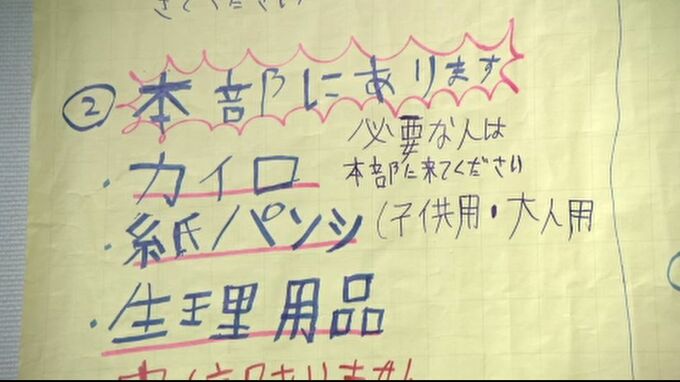 さてください
② 本部にあります
必要な人は
本部に来てください
・カイロ
・紙パンツ(子供用・大人用
・生理用品
ありません